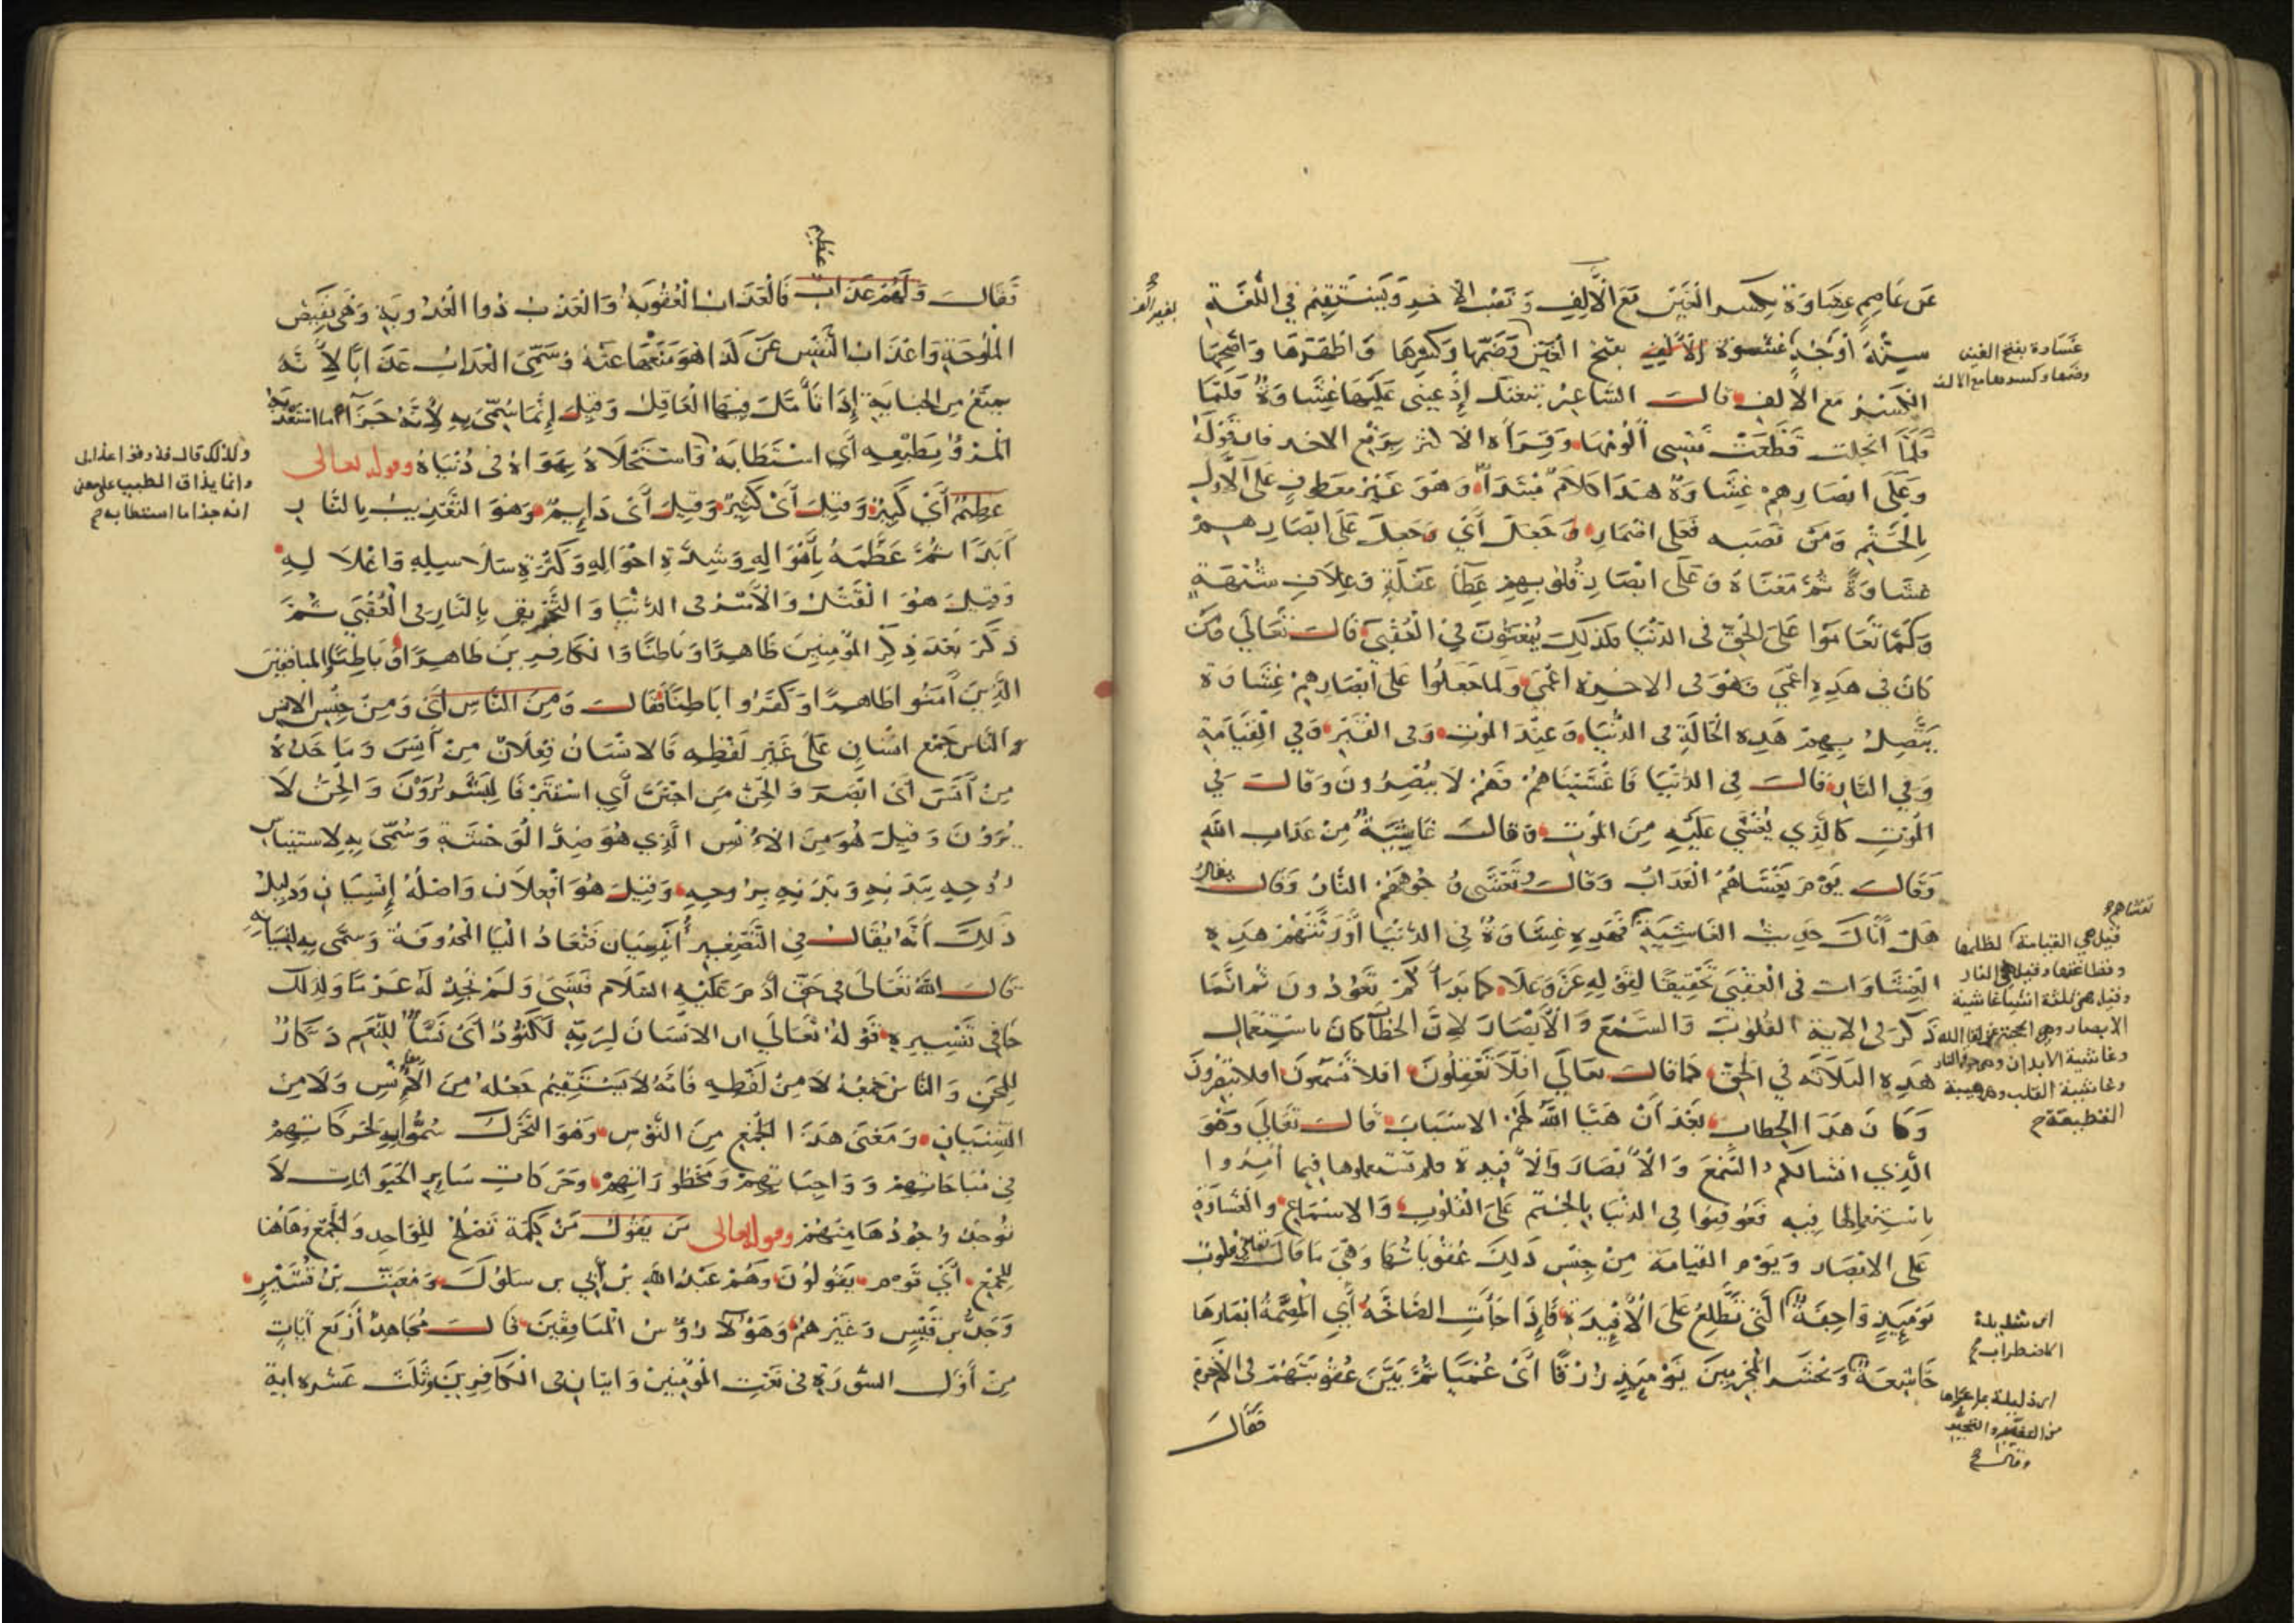 عَن عَاصِمٍ غِشَاوَةً بِكسر الغَيْن مَع الأَلِفِ وَنَصْب الآخِرِ وَيَسْتَقِيمُ فِي اللُّغَةِ
سِتَّةُ أَوْجُهٍ غشوة بفتح الغَيْنِ وَضَمِّهَا وَكَسْرِهَا وَأَظْهَرُهَا وَأَصَحُّهَا
الكَسْرُ مَع الالِفِ قَالَ الشاعِرُ تبعتك إِذْ عَيْنِي عَلَيْهَا غِشَاوَةٌ فَلَمَّا
فَلَمَّا انجَلت قَطَّعَتْ نَفْسِى أَلُومُهَا وَقِرَاءَة الاكثر بِرَفْعِ الاخر فان قَوْلَهُ
وَعَلَى ابْصَارِهِمْ غِشَاوَةٌ هَذَا كَلَامٌ مُبْتَدَأٌ وَهُوَ غَيْرُ مَعطُوفٍ عَلَى الأَوَّلِ
بِالخَتْمِ وَمَنْ نَصَبَه فَعَلى اضْمَارِ وَجَعَلَ أَيْ وَجَعَلَ عَلَى ابْصَارِهِمْ
غشَاوَةً ثُمَّ مَعْنَاهُ وَعَلَى ابْصَارِ قُلُوبِهِمْ غِطَاءُ غَفْلَةٍ وَغِلَافُ شُبْهَةٍ
وَكَمَا تَعَامَوْا عَلَى الحَقِّ فى الدُّنْيَا فكذلِكَ يُبْعَثُونَ فِي الْعُقْبَى قَالَ تَعَالَى وَمَن
كَانَ فِي هَذِهِ اعْمَى فَهُوَ فى الاخِرَة اعْمَى وَلَمَّا جَعَلُوا عَلَى أَبْصَارِهِمْ غِشَاوَة
يَتَّصِلُ بِهِمْ هَذِهِ الْحَالَةِ فى الدُّنْيَا وَعِنْدَ المَوْتِ وَفى القَبْرِ وَفِي الْقِيَامَةِ
وَفِي النَّارِ قَالَ فِي الدُّنْيَا فَأَغْشَيْنَاهُمْ فَهُمْ لَا يُبْصِرُونَ وَقَالَ فِي
المَوْتِ كَالَّذِي يُغْشَى عَلَيْهِ مِنَ المَوْتِ وَقَالَ غَاشِيَةٌ مِنْ عَذَابِ اللهِ
وَقَالَ يَوْمَ يَغْشَاهُمُ الْعَذَابُ وَقَالَ وَتَغْشَى وُجُوهَهُمُ النَّارُ وَقَالَ
هَلْ أَتَاكَ حَدِيثُ الغَاشِيَةِ فَهَذِهِ غِشَاوَةٌ فِي الدُّنْيَا أَوْرَثَتْهُمْ هَذِهِ
الغِشَاوَات فى الْعُقْبَى تَحْقِيقًا لِقَوْلِهِ عَزَّ وَعَلَا كَمَا بَدَأَكُمْ تَعُودُونَ ثم انَّمَا
ذَكَرَ فى الاية القُلُوبَ وَالسَّمْعَ وَالأَبْصَارَ لِأَنَّ الخِطَابَ كَانَ باسْتِعْمَالِ
هَذِهِ الثلاثه فِي الحَقِّ كَمَا قَالَ تعَالَى افَلَا تَعْقِلُونَ افَلَا تَسْمَعُونَ افلا تبْصِرُونَ
وَكَانَ هَذَا الخِطَاب بَعْدَ أَنْ هَيَّا اللهُ لَهُمُ الاسْبَابَ قَالَ تَعَالَى وَهُوَ
الَّذِي انشَا لكم السَّمْعَ وَالأَبْصَارَ وَالأَفْئِدَة فلم تستعملوها فِيمَا أُمِرُوا
بِاسْتِعْمَالِهَا فِيهِ فَعُوقِبُوا فِى الدنْيَا بِالخَتْمِ عَلَى القُلُوبِ وَالاسْمَاعِ وَالغشَاوَةِ
عَلَى الابْصَار وَيَوْمَ القيَامَة مِنْ جِنْسِ ذَلِكَ عُقُوبَاتُهَا وَهِيَ مَا قَالَ تعالى قلوبٌ
يَوْمَئِذٍ وَاجِفَةٌ الَّتِى تَطَّلِعُ عَلَى الأَفْئِدَةِ فَإِذَا جَاءَتِ الصَّاخَّةُ أَيِ الْمُصِمَّةُ ابْصَارُهَا
خَاشِعَةٌ وَنَحْشُرُ الْمُجْرِمِينَ يَوْمَئِذٍ زُرْقًا أَىْ عُمْيًا ثُمَّ بَيَّنَ عُقُوبَتَهُمْ فِى الْآخِرَةِ
فَقَالَ
غشاوة بفتح الغين
وضمها وكسرها مع الالف
قيل هي القيامة لظلمها
وفظاعتها وقيل هي النار
وقيل هى ثلثة اشيا غاشية
الابصار
وغاشية الابدان وهي النار
وغاشية القلب وهي هيبة
القطيعة ح
اى شديدة
الاضطراب ح
اى ذليلة
وقال ح
فَقَالَ وَلَهُمْ عَذَابٌ عظيم فَالْعَذَابُ الْعُقُوبَةُ وَالْعَذْبُ ذُو الْعُذُوبَةِ وَهْيَ نَقِيضُ
المُلُوحَةِ وَاعْذَابُ النَّفْسِ عَنْ كَذَا هُوَ مَنْعُهَا عَنْهُ وَسُمِّىَ الْعَذَابُ عَذَابًا لِأَنَّهُ
يمْنَعُ مِن الجِنَايَةِ إِذَا تَأَمَّلَ فِيهَا الْعَاقِلُ وَقِيلَ إِنَّمَا سُمِّىَ بِهِ لِأَنَّهُ جَزَاءُ مَا اسْتَعْذَبَهُ
المَرْءُ بِطَبْعِهِ أَىِ اسْتَطَابَهُ وَاسْتَحْلَاهُ بِهَوَاهُ فى دُنْيَاهُ وقوله تعالى
عَظِيمٌ أَىْ كَبِيرٌ وَقِيلَ أَىْ كَثِيرٌ وَقِيلَ أَىْ دَايِمٌ وَهُوَ التَّعْذِيبُ بِالنَّارِ
أَبَدًا ثُمَّ عَظَّمَهُ بِأَهْوَالِهِ وَشِدَّةِ احْوَالِهِ وَكَثْرَةِ سَلَاسِلِهِ وَاغْلَالِهِ
وَقِيلَ هُوَ الْقَتْلُ وَالأَسْرُ فى الدُّنْيَا وَالتَّحْرِيقُ بِالنَّارِ فى الْعُقْبَى ثُمَّ
ذَكَرَ بَعْدَ ذِكْرِ المُؤْمِنِينَ ظَاهِرًا وَبَاطِنًا وَالْكَافِرِينَ ظَاهِرًا وَبَاطِنًا المنافقين
الَّذِينَ آمَنُوا ظَاهِرًا وَكَفَرُوا بَاطِنًا فَقَالَ وَمِنَ النَّاسِ أَىْ وَمِنْ جِنْسِ الانس
وَالنَّاس جَمْع انْسَانٍ عَلَى غَيْرِ لَفْظِهِ فَالانْسَانُ فِعْلَانٌ مِنْ أَنِسَ وَمَا خَذُهُ
مِنْ آنَسَ أَىْ ابْصَرَ وَالجِنُّ مِن اجْتَنَّ أَيِ اسْتَتَرَ فَالبَشَرُ يُرَوْنَ وَالجِنُّ لَا
يُرَوْنَ وَقِيلَ هُوَ مِنَ الاُنْسِ الَّذِي هُوَ ضِدُّ الْوَحْشَةِ وَسُمِّىَ بِهِ لِاسْتِينَاسِ
رُوحِهِ بِبَدَنِهِ وَبَدَنِهِ بِرُوحِهِ وَقِيلَ هُوَ افْعِلَان وَاصْلُهُ إِنْسِيَان وَدَلِيلُ
ذَلِكَ أَنَّهُ يُقَالُ فِى التَّصْغِيرِ أُنَيْسِيَان فَتُعَادُ الْيَا المَحْذُوفَةُ وَسُمِّىَ بِهِ لِنِسْيَانِهِ
قَالَ اللهُ تَعَالَى فِى حَقِّ آدَمَ عَلَيْهِ السَّلَام فَنَسِىَ وَلَمْ نَجِدْ لَهُ عَزْمًا وَلِذَلِكَ
جَا فِى تَفْسِيرِ قَوْلِهُ تَعَالَى ان الانْسَانَ لِرَبِّهِ لَكَنُودٌ أَىْ نَسَّاءٌ لِلنِّعَمِ ذَكَّارٌ
لِلْمِحَنِ وَالنَّاسُ جَمْعُهُ لَا مِنْ لَفْظِهِ فَانَّهُ لَا يَسْتَقِيمُ جَعْلُهُ مِنَ الْأُنْسِ وَلَا مِنَ
النِّسْيَانِ وَمَعْنَى هَذَا الجَمْعِ مِنَ النَّوْسِ وَهُوَ التَّحَرُّكُ سُمُّوا بِهِ لِحَرَكَاتِهِمْ
فِى مُبَاحَاتِهِمْ وَوَاجِبَاتِهِمْ وَمَحْظُورَاتِهِمْ وَحَرَكَات سَايِرِ الحَيَوَانَاتِ لَا
تُوجَبُ وُجُودُهَا مِنْهُمْ وقوله تعالى مَن يَقُولُ مَنْ كَلِمَة تَصْلُحُ لِلوَاحِدِ وَالجَمْعِ وَهَاهُنَا
لِلجَمْعِ أَىْ قَوْم يَقُولُونَ وَهُمْ عَبْدُ اللهِ بْن أُبَيِّ بن سَلُولَ وَمُعَتِّبُ بْنُ قُشَيْرٍ
وَجَدُّ بن قَيْسٍ وَغَيْرهُمْ وَهَؤُلَا رُؤُسُ الْمُنَافِقِينَ قَالَ مُجَاهِدٌ أَرْبَع آيَاتٍ
مِنْ أَوَّلِ السُّورَةِ فى نَعْتِ المُؤْمِنِينَ وَايَتَانِ فى الْكَافِرِينَ وَثَلَثَ عَشْرَة ايَة
وكذلك قال فذوقوا عذابى
وانما يذاق الطيب على معنى
انه جزا ما استطابه ح